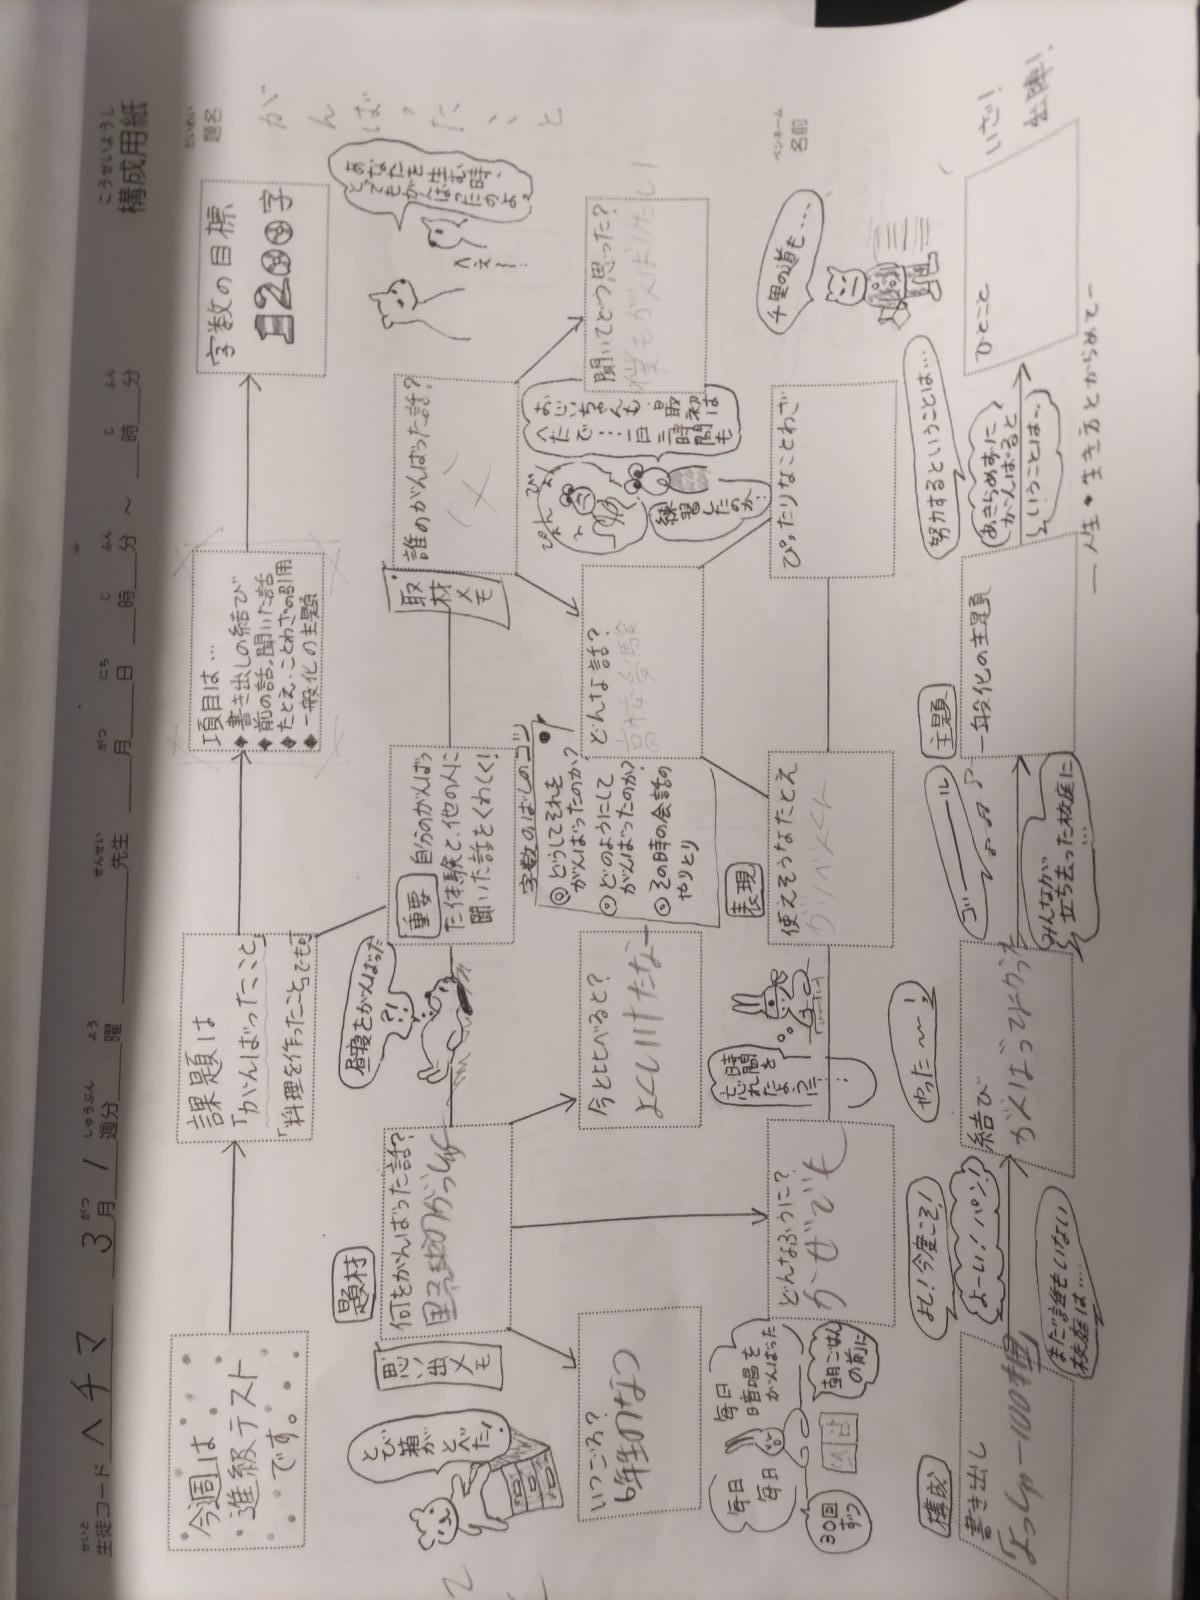 こうせいようし
構成用紙
せいと
生徒コード ヘチマ 3月1週分 曜 先生 月 日 時 分 ~ 時 分
がつ しゅうぶん よう せんせい がつ にち じ ふん じ ふん
だいめい
題名
がんばったこと
ペンネーム
名前
今週は
進級テスト
です。
課題は
「がんばったこと」
「料理を作ったこと」でも可
項目は…
◆書き出しの結び
◆前の話,聞いた話
◆たとえ,ことわざの引用
◆一般化の主題
字数の目標
1200字
とび箱が
とべた!
思い出メモ
題材
何をがんばった話?
昼寝をがんばった
?!
重要 自分のがんばっ
た体験と、他の人に
聞いた話をくわしく!
取材メモ
誰のがんばった話?
父
へえ~!
あなたを生む時、
とてもがんばったのよ。
いつごろ?
6年生のなつ
今とくらべると?
よくいけたなー
字数のばしのコツ
◎どうしてそれを
がんばったのか?
⊙どのようにして
がんばったのか?
⊙その時の会話の
やりとり
どんな話?
高校受験
ぴょん
ぴょん
おじいちゃんも最初は
へたで…一日三時間も
練習したのか!
聞いてどう思った?
僕もがんばりたい
毎日
毎日
毎日
暗唱を
がんばった
30回
ずつ
朝ごはん
の前に
どんなふうに?
かーぜでも
時間を
忘れた
ように…
表現
使えそうなたとえ
ガリベンくん
ぴったりなことわざ
千里の道も…
構成
書き出し
よし!今度こそ!
よーい!パン!
まだ誰もいない
校庭は…
結び
がんばって
やった~!
ゴーーール
みんなが
立ち去った校庭に
…
主題
一般化の主題
努力するということは…
あきらめずに
がんばると
いうことは…
―人生・生き方とからめて―
ひとこと
いざ!
出陣!